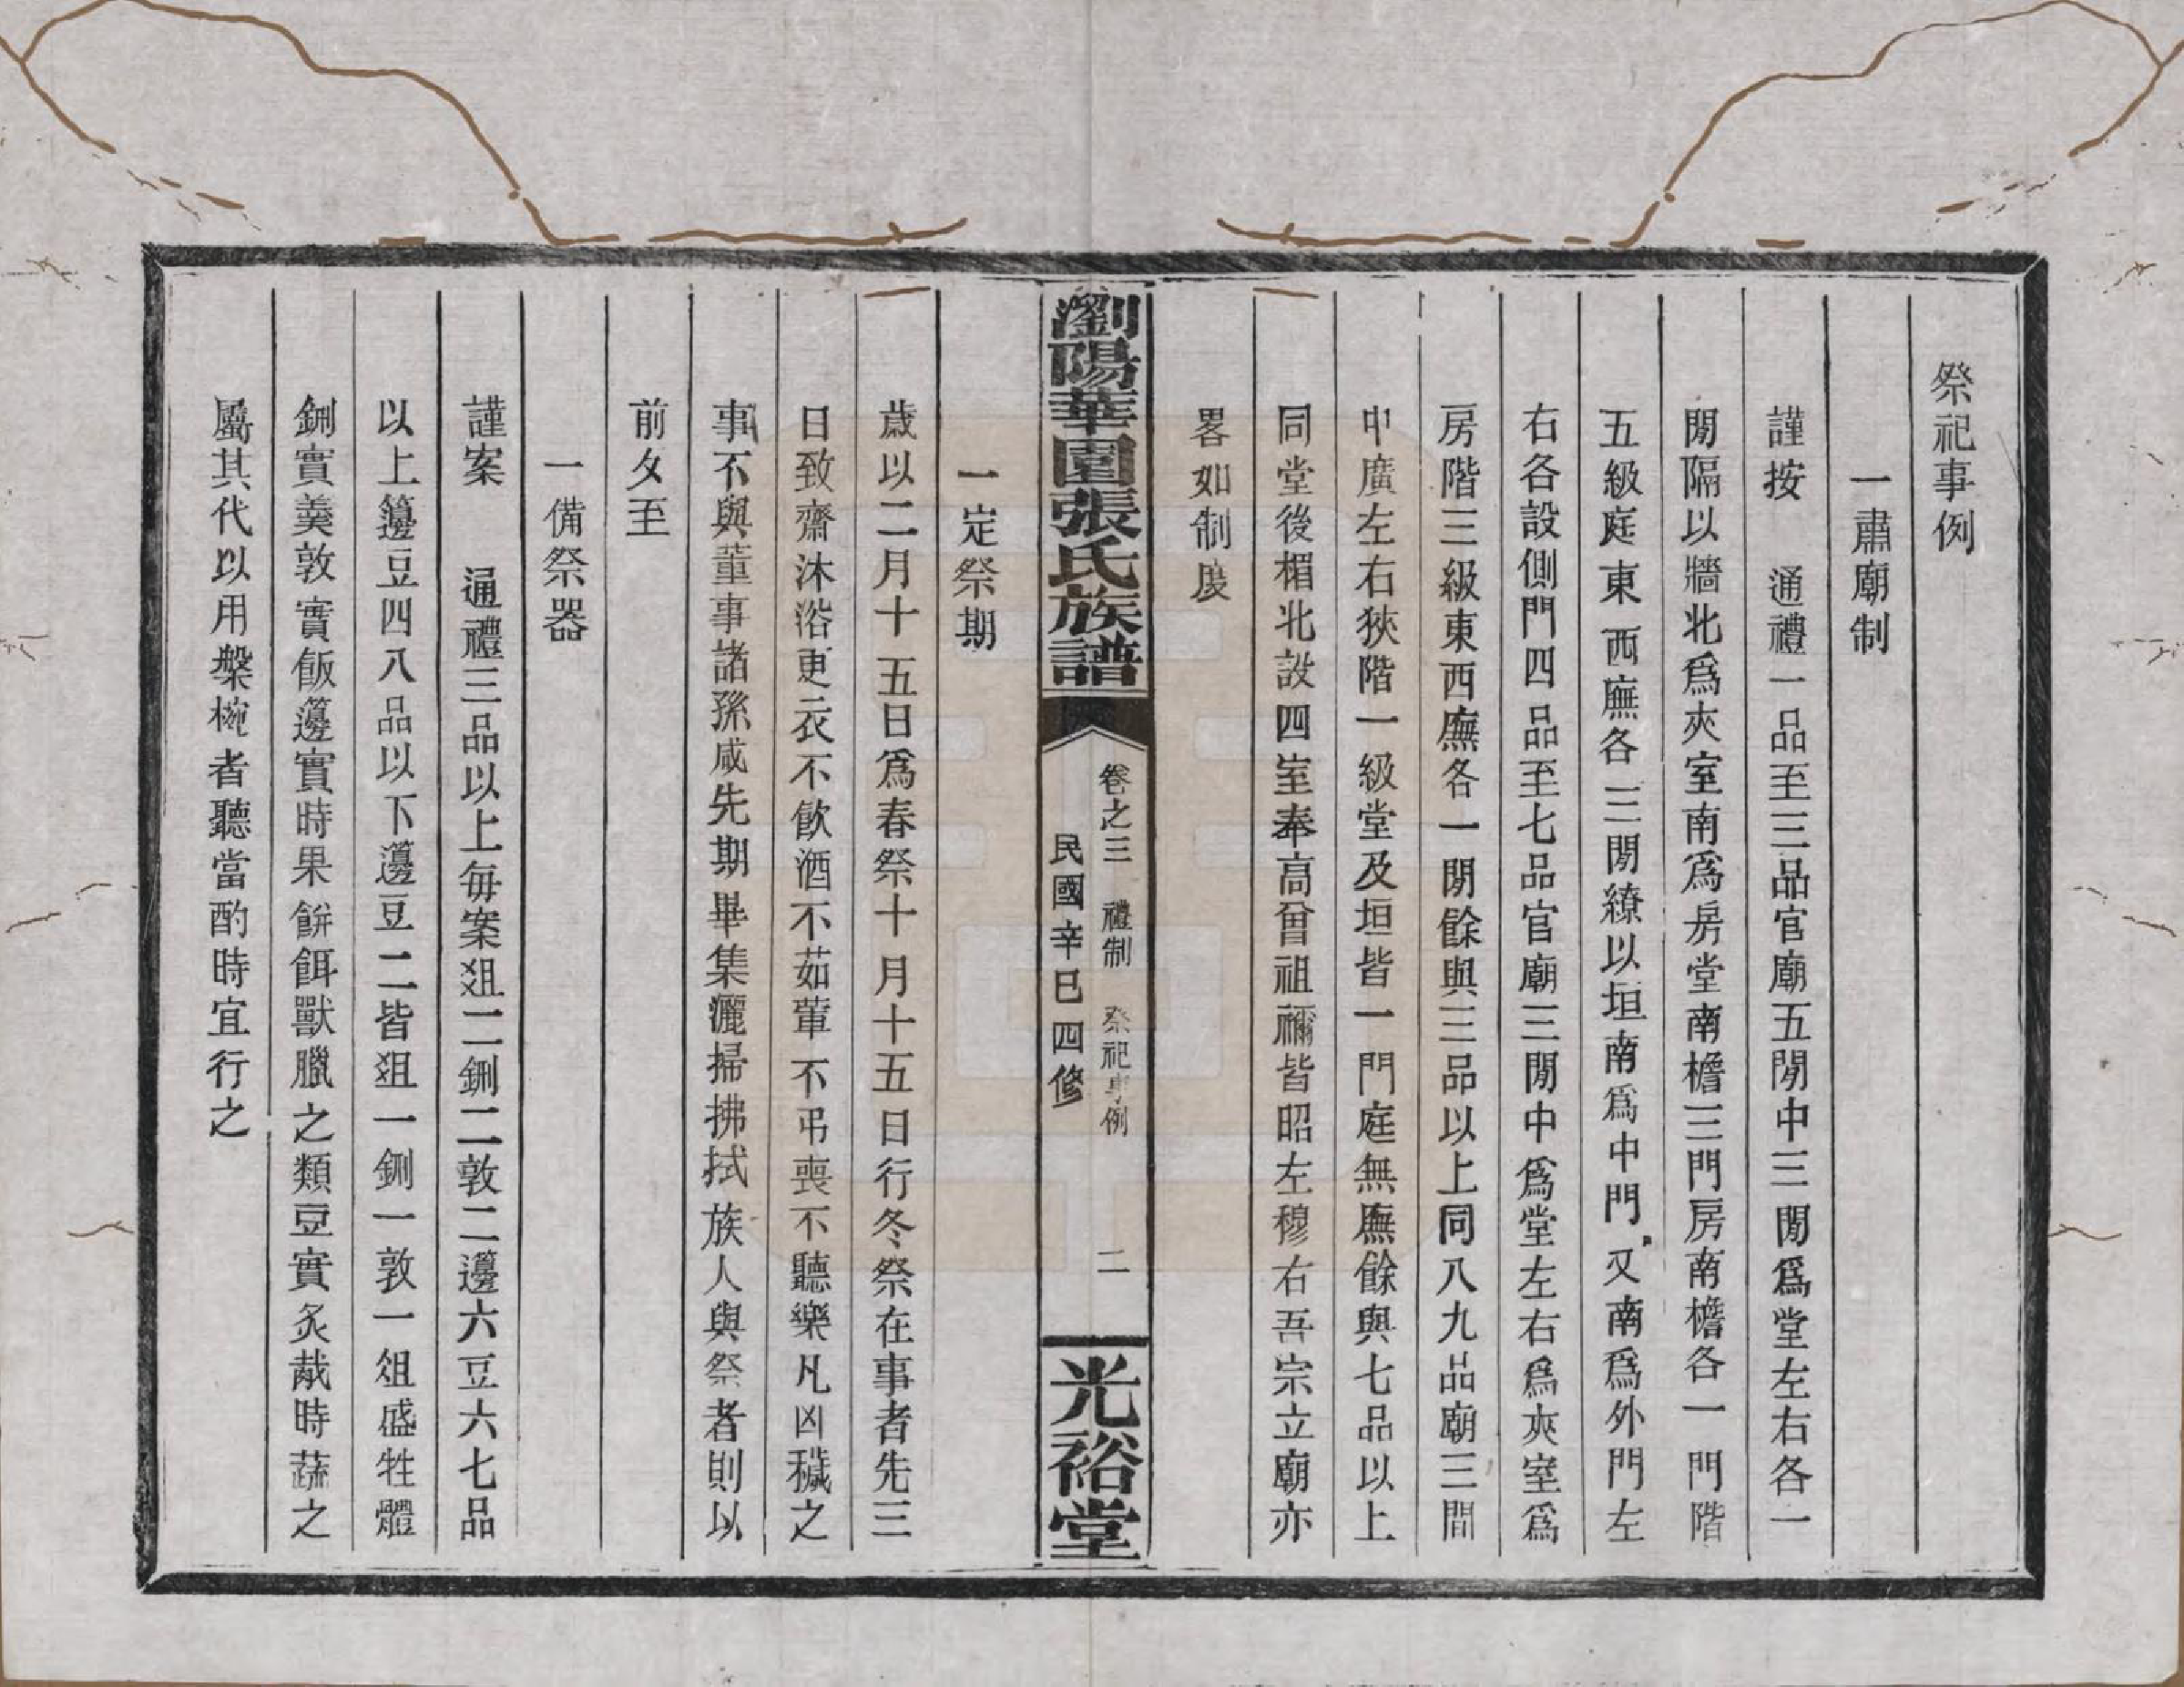 祭祀事例
一肅廟制
謹按　通禮一品至三品官廟五閒中三閒爲堂左右各一
閒隔以牆北爲夾室南爲房堂南檐三門房南檐各一門階
五級庭東西廡各三閒繚以垣南爲中門又南爲外門左
右各設側門四品至七品官廟三閒中爲堂左右爲夾室爲
房階三級東西廡各一閒餘與三品以上同八九品廟三間
中廣左右狹階一級堂及垣皆一門庭無廡餘與七品以上
同堂後楣北設四室奉高曾祖禰皆昭左穆右吾宗立廟亦
畧如制度
瀏陽華園張氏族譜
卷之三　禮制　祭祀事例　二
民國辛巳四修
光裕堂
一定祭期
歲以二月十五日爲春祭十月十五日行冬祭在事者先三
日致齋沐浴更衣不飲酒不茹葷不弔喪不聽樂凡凶穢之
事不與董事諸孫咸先期畢集灑掃拂拭族人與祭者則以
前夂至
一備祭器
謹案　通禮三品以上每案俎二鉶二敦二籩六豆六七品
以上籩豆四八品以下籩豆二皆俎一鉶一敦一俎盛牲體
鉶實羹敦實飯籩實時果餅餌獸臘之類豆實炙胾時蔬之
屬其代以用槃椀者聽當酌時宜行之